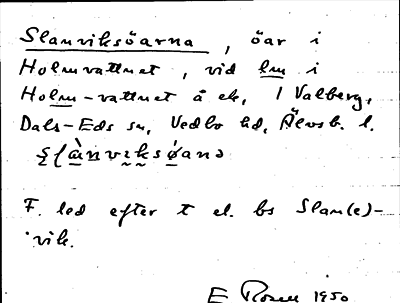 Slanviksöarna, öar i
Holmvattnet, vid lm i
Holm-vattnet å ek, 1 Valberg,
Dals-Eds sn, Vedbo hd, Älvsb. l.
F. led efter t el. bs Slan(e)-
vik.
E Rosell 1950